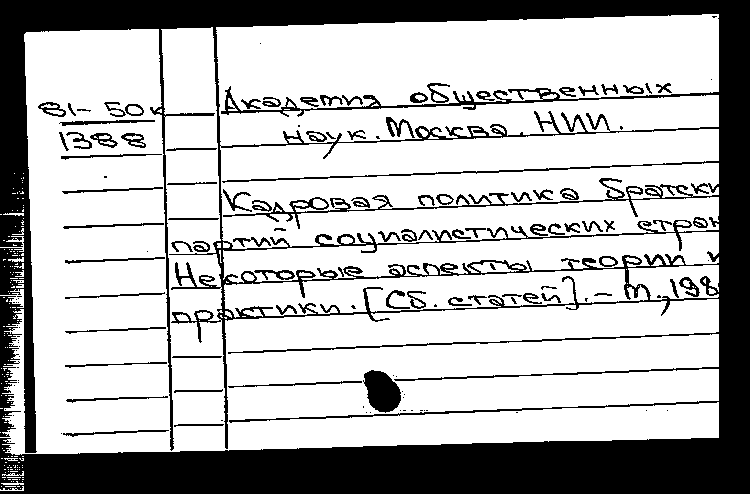 81-50к
1388
Академия общественных
наук. Москва. НИИ.
Кадровая политика братски
партий социалистических стран
Некоторые аспекты теории и
практики. [Сб. статей]. - М., 198